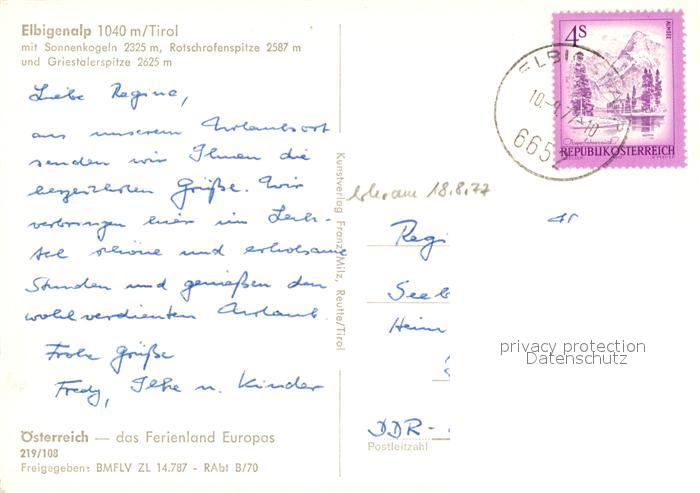 Elbigenalp 1040 m/Tirol
mit Sonnenkogeln 2325 m, Rotschrofenspitze 2587 m
und Griestalerspitze 2625 m
Liebe Regina,
aus unserem Urlaubsort
senden wir Ihnen die
herzlichsten Grüße. Wir
verbringen hier im Lech-
tal schöne und erholsame
Stunden und genießen den
wohlverdienten Urlaub.
Frohe Grüße
Fredy, Ilse u. Kinder
Österreich — das Ferienland Europas
219/108
Freigegeben: BMFLV ZL 14.787 - RAbt B/70
Kunstverlag Franz Milz, Reutte/Tirol
4S
ALMSEE
REPUBLIK ÖSTERREICH
ELBIG
6652
am 18.8.77
Regi
Seeb
Heim
DDR-
Postleitzahl
privacy protection
Datenschutz